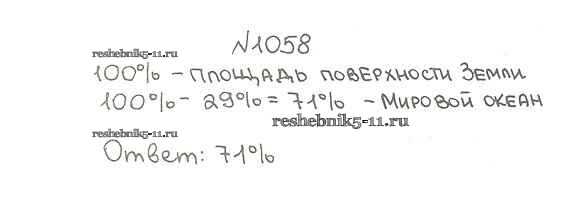 №1058
reshebnik5-11.ru
100% – площадь поверхности Земли
100% – 29% = 71% – Мировой океан
reshebnik5-11.ru
reshebnik5-11.ru
Ответ: 71%